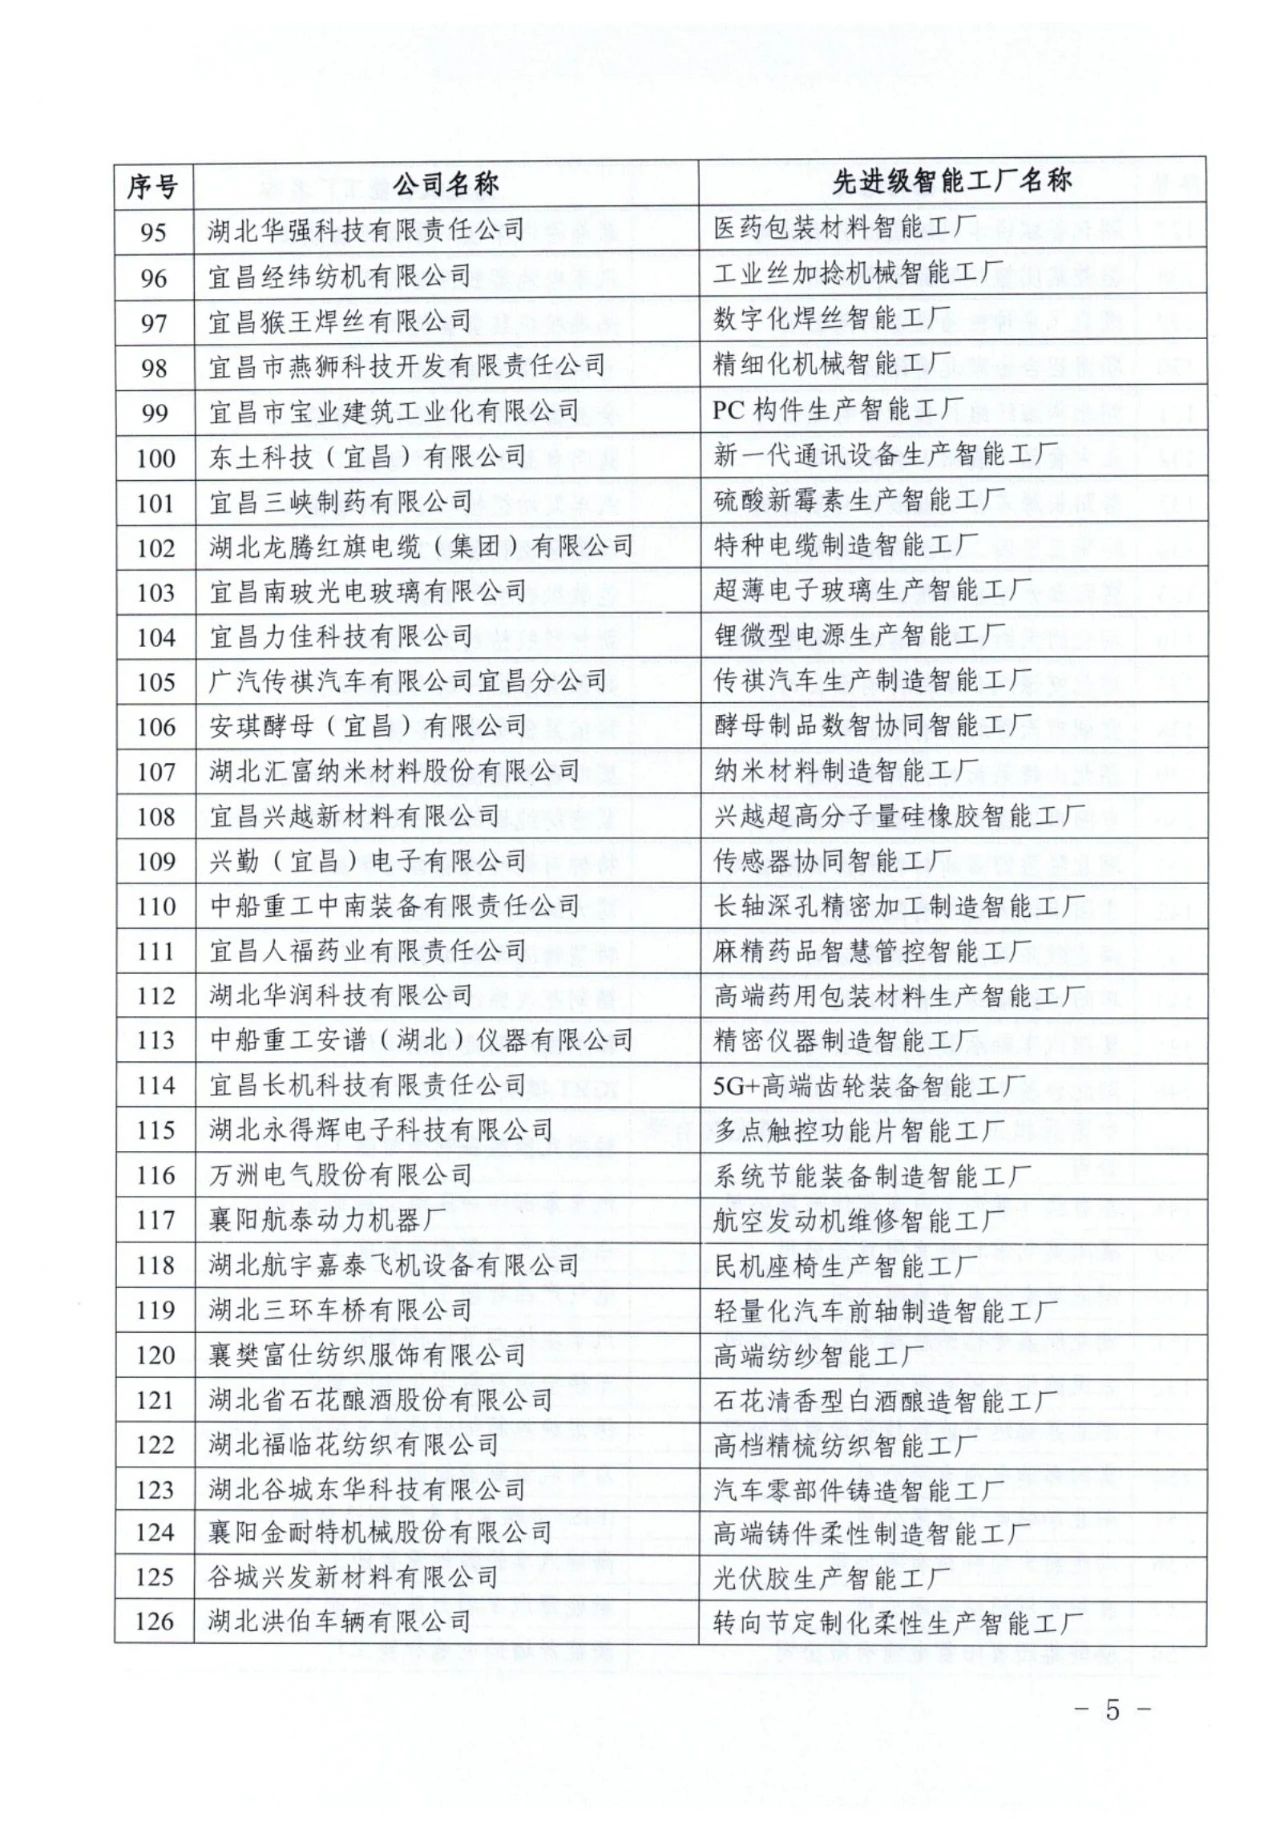 序号 公司名称 先进级智能工厂名称
95 湖北华强科技有限责任公司 医药包装材料智能工厂
96 宜昌经纬纺机有限公司 工业丝加捻机械智能工厂
97 宜昌猴王焊丝有限公司 数字化焊丝智能工厂
98 宜昌市燕狮科技开发有限责任公司 精细化机械智能工厂
99 宜昌市宝业建筑工业化有限公司 PC 构件生产智能工厂
100 东土科技（宜昌）有限公司 新一代通讯设备生产智能工厂
101 宜昌三峡制药有限公司 硫酸新霉素生产智能工厂
102 湖北龙腾红旗电缆（集团）有限公司 特种电缆制造智能工厂
103 宜昌南玻光电玻璃有限公司 超薄电子玻璃生产智能工厂
104 宜昌力佳科技有限公司 锂微型电源生产智能工厂
105 广汽传祺汽车有限公司宜昌分公司 传祺汽车生产制造智能工厂
106 安琪酵母（宜昌）有限公司 酵母制品数智协同智能工厂
107 湖北汇富纳米材料股份有限公司 纳米材料制造智能工厂
108 宜昌兴越新材料有限公司 兴越超高分子量硅橡胶智能工厂
109 兴勤（宜昌）电子有限公司 传感器协同智能工厂
110 中船重工中南装备有限责任公司 长轴深孔精密加工制造智能工厂
111 宜昌人福药业有限责任公司 麻精药品智慧管控智能工厂
112 湖北华润科技有限公司 高端药用包装材料生产智能工厂
113 中船重工安谱（湖北）仪器有限公司 精密仪器制造智能工厂
114 宜昌长机科技有限责任公司 5G+高端齿轮装备智能工厂
115 湖北永得辉电子科技有限公司 多点触控功能片智能工厂
116 万洲电气股份有限公司 系统节能装备制造智能工厂
117 襄阳航泰动力机器厂 航空发动机维修智能工厂
118 湖北航宇嘉泰飞机设备有限公司 民机座椅生产智能工厂
119 湖北三环车桥有限公司 轻量化汽车前轴制造智能工厂
120 襄樊富仕纺织服饰有限公司 高端纺纱智能工厂
121 湖北省石花酿酒股份有限公司 石花清香型白酒酿造智能工厂
122 湖北福临花纺织有限公司 高档精梳纺织智能工厂
123 湖北谷城东华科技有限公司 汽车零部件铸造智能工厂
124 襄阳金耐特机械股份有限公司 高端铸件柔性制造智能工厂
125 谷城兴发新材料有限公司 光伏胶生产智能工厂
126 湖北洪伯车辆有限公司 转向节定制化柔性生产智能工厂
- 5 -